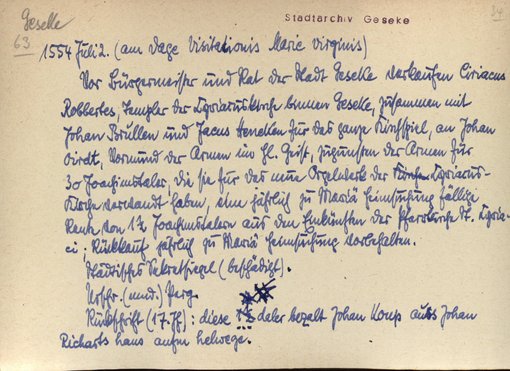 Geseke
63
Stadtarchiv Geseke
34
1554 Juli 2. (am dage Visitationis Marie virginis)
Vor Bürgermeister und Rat der Stadt Geseke verkaufen Ciriacus
Robbertes, Templer der Cyriacuskirche binnen Geseke, zusammen mit
Johan Brüllen und Jacus Heneken für das ganze Kirchspiel, an Johan
Oirdt, Vormund der Armen im Hl. Geist, zugunsten der Armen für
30 Joachimstaler, die sie für das neue Orgelwerk der Cyriacus-
Kirche verwandt haben, eine jährlich zu Mariä Heimsuchung fällige
Rente von 1½ Joachimstalern aus den Einkünften der Pfarrkirche St. Cyria-
ci. Rückkauf jährlich zu Mariä Heimsuchung vorbehalten.
Städtisches Sekretsiegel (beschädigt).
Urschr. (nnd.) Perg.
Rückschrift (17. Jh): diese 1½ daler bezalt Johan Koup auß Johan
Richarts hauß aufm helwege.